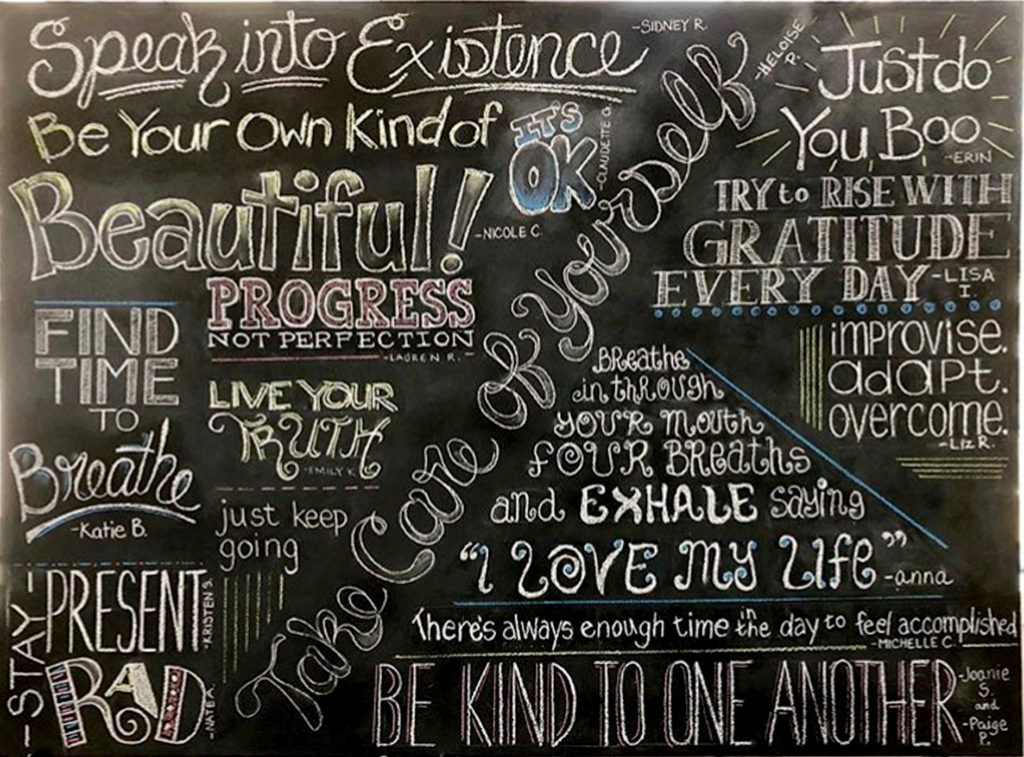 Speak into Existence
-SIDNEY R.
Be Your Own Kind of
Beautiful!!
-NICOLE C.
IT'S
OK
-CLAUDETTE O.
Take Care of Yourself
-HELOISE
P.
Just do
You Boo
-ERIN
TRY to RISE WITH
GRATITUDE
EVERY DAY
-LISA
I.
PROGRESS
NOT PERFECTION
-LAUREN R.
FIND
TIME
TO
Breathe
-Katie B.
LIVE YOUR
TRUTH
-EMILY K.
just keep
going
Breathe
in through
YOUR MOUTH
FOUR BREATHS
and EXHALE saying
"I LOVE MY LIFE"
-anna
improvise.
adapt.
overcome.
-LIZ R.
-STAY-
PRESENT
-KRISTEN S.
RAD
-NATE A.
There's always enough time in the day to feel accomplished
-MICHELLE C.
BE KIND TO ONE ANOTHER
-Joanie
S.
and
-Paige
P.